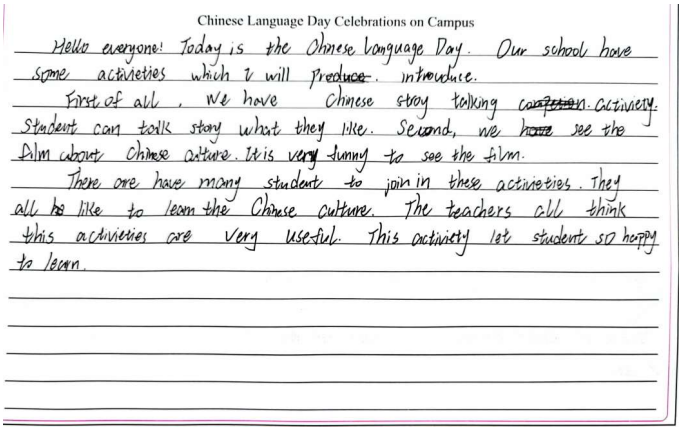 Chinese Language Day Celebrations on Campus
Hello everyone! Today is the Chinese Language Day. Our school have
some activieties which I will produce. introuduce.
First of all, We have Chinese stroy talking activiety.
Student can talk story what they like. Second, we have see the
film about Chinese culture. It is very funny to see the film.
There are have many student to join in these activieties. They
all like to learn the Chinese culture. The teachers all think
this activieties are very useful. This activiety let student so happy
to learn.